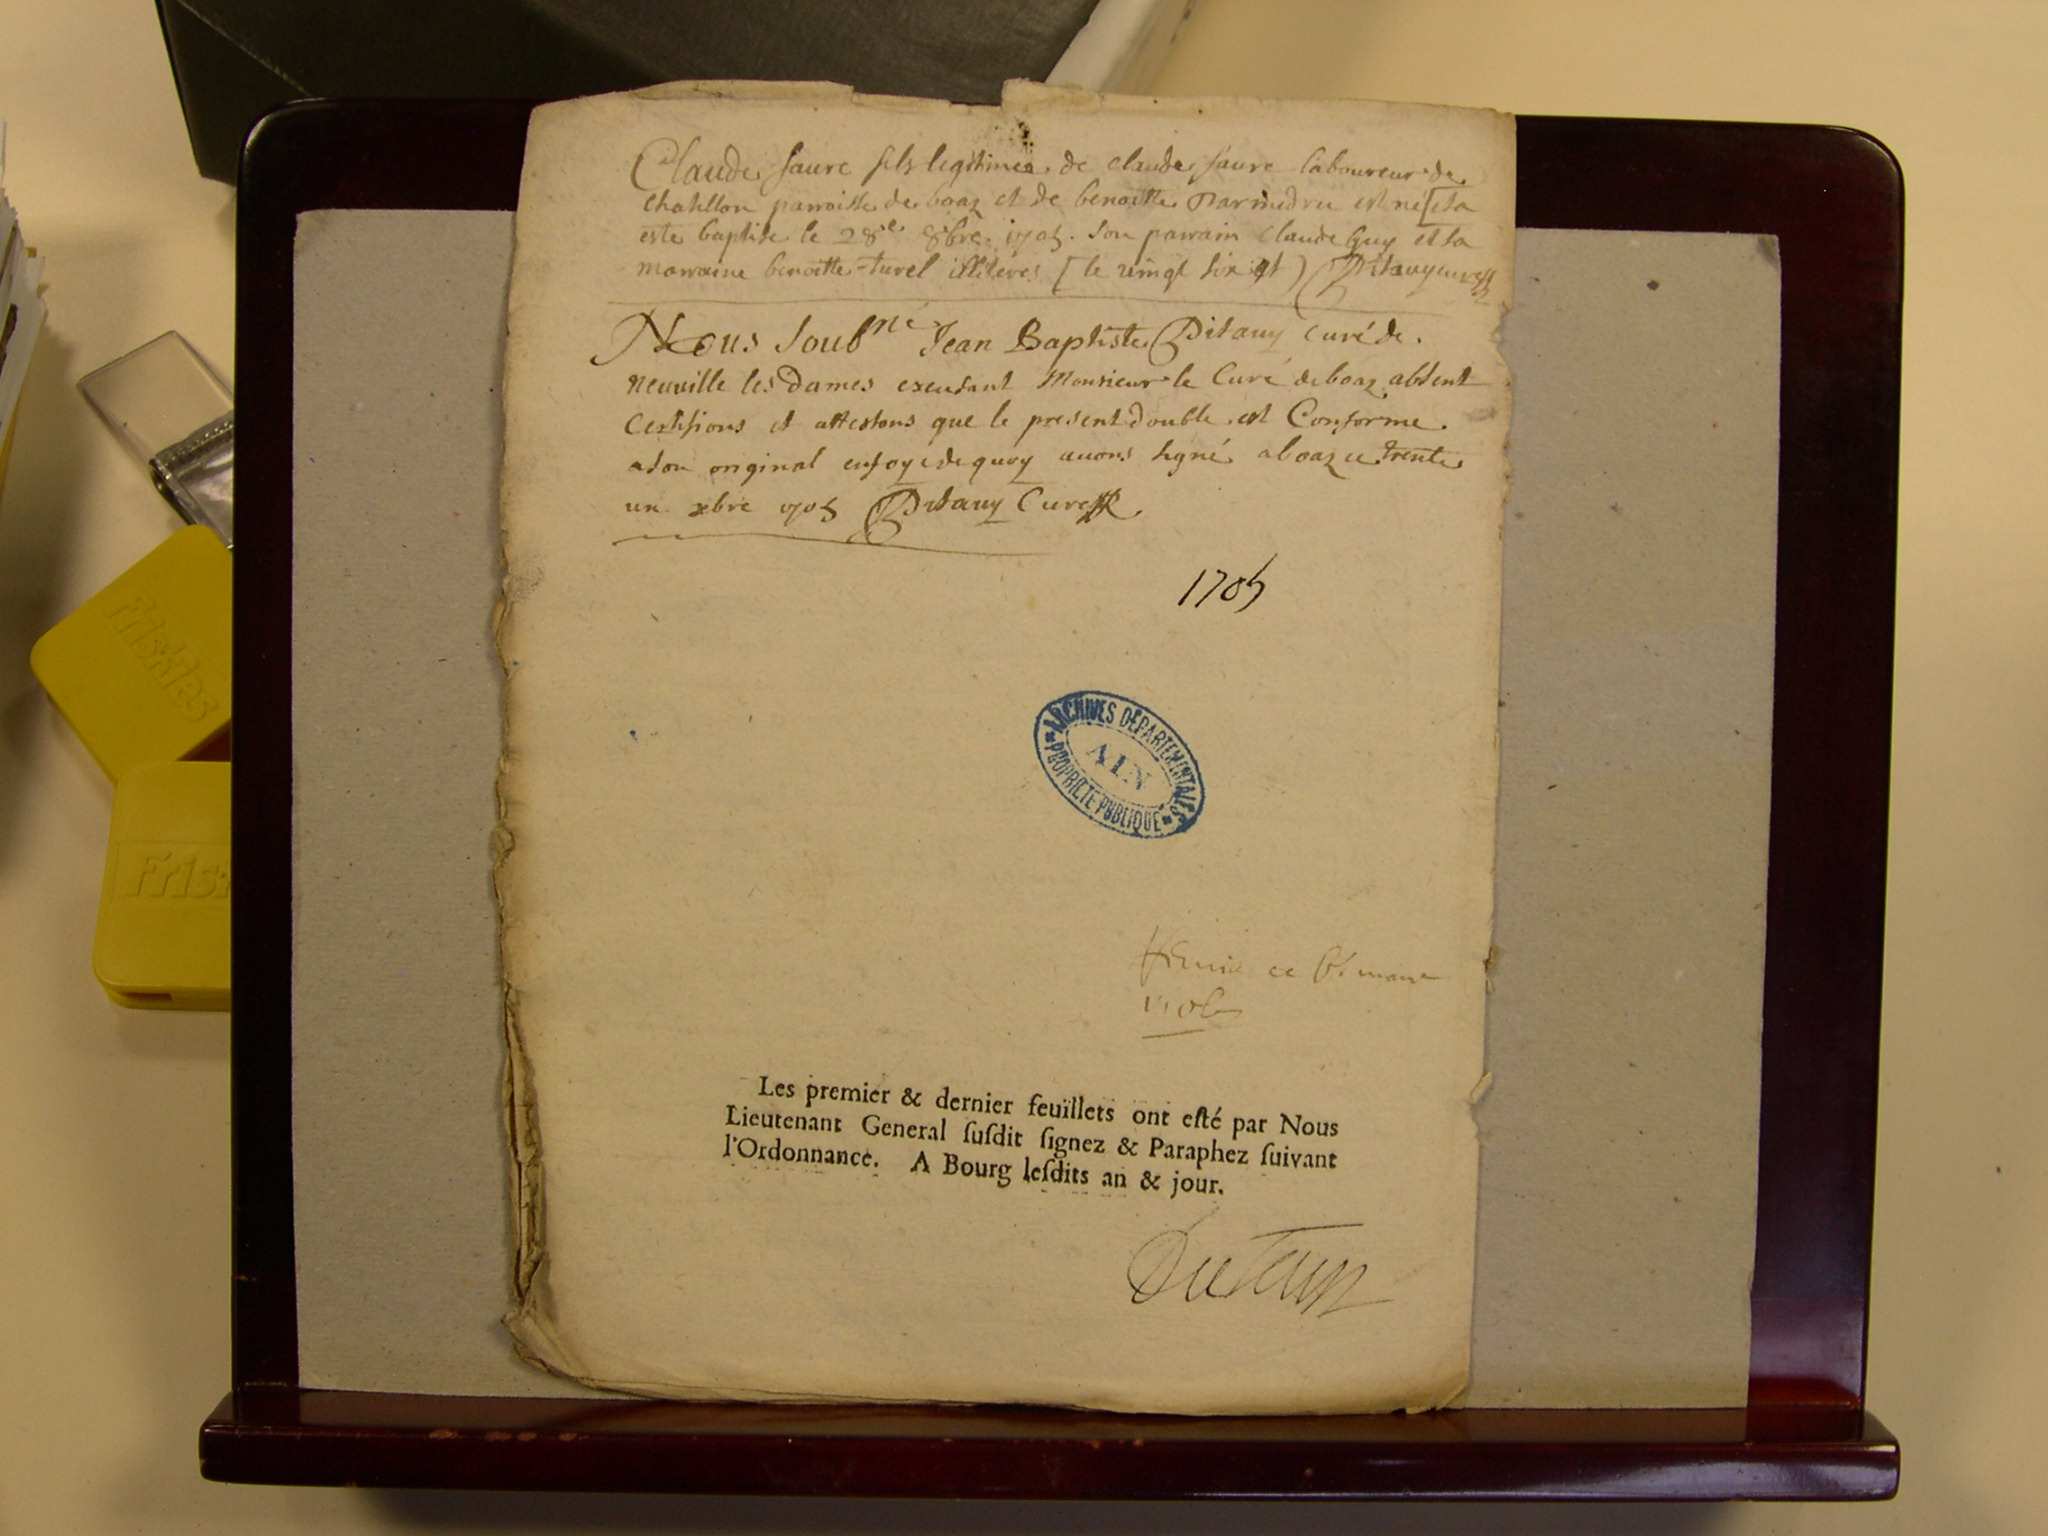 Claude faure fils legitime de claude faure laboureur de
chatillon parroisse de boaz et de benoitte est né [et a
esté baptise le 28e 8bre 1705. Son parrain Claude Guy et sa
marraine benoitte turel illiteres [le vingt six et) Pitauy curé
Nous Soubné Jean Baptiste Pitauy curé de
neuuille les Dames excusant Monsieur le Curé de boaz absent
Certifions et attestons que le present double est Conforme
a son original en foy de quoy auons signé a boaz ce trente
un xbre 1705 Pitauy Curé
1705
ARCHIVES DÉPARTEMENTALES
AIN
PROPRIÉTÉ PUBLIQUE
ce mars
1706
Les premier & dernier feuillets ont esté par Nous
Lieutenant General susdit signez & Paraphez suivant
l'Ordonnance. A Bourg lesdits an & jour.
Friskies
Fris